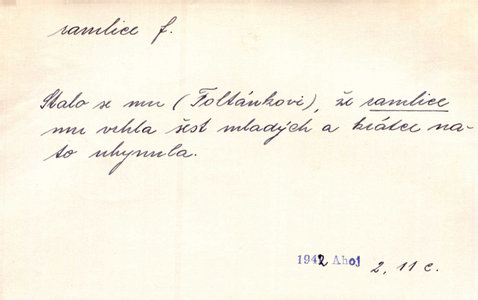 ramlice f.
Stalo se mu (Foltánkovi), že ramlice
mu vrhla šest mladých a krátce na-
to uhynula.
1942 Ahoj 2, 11 c.